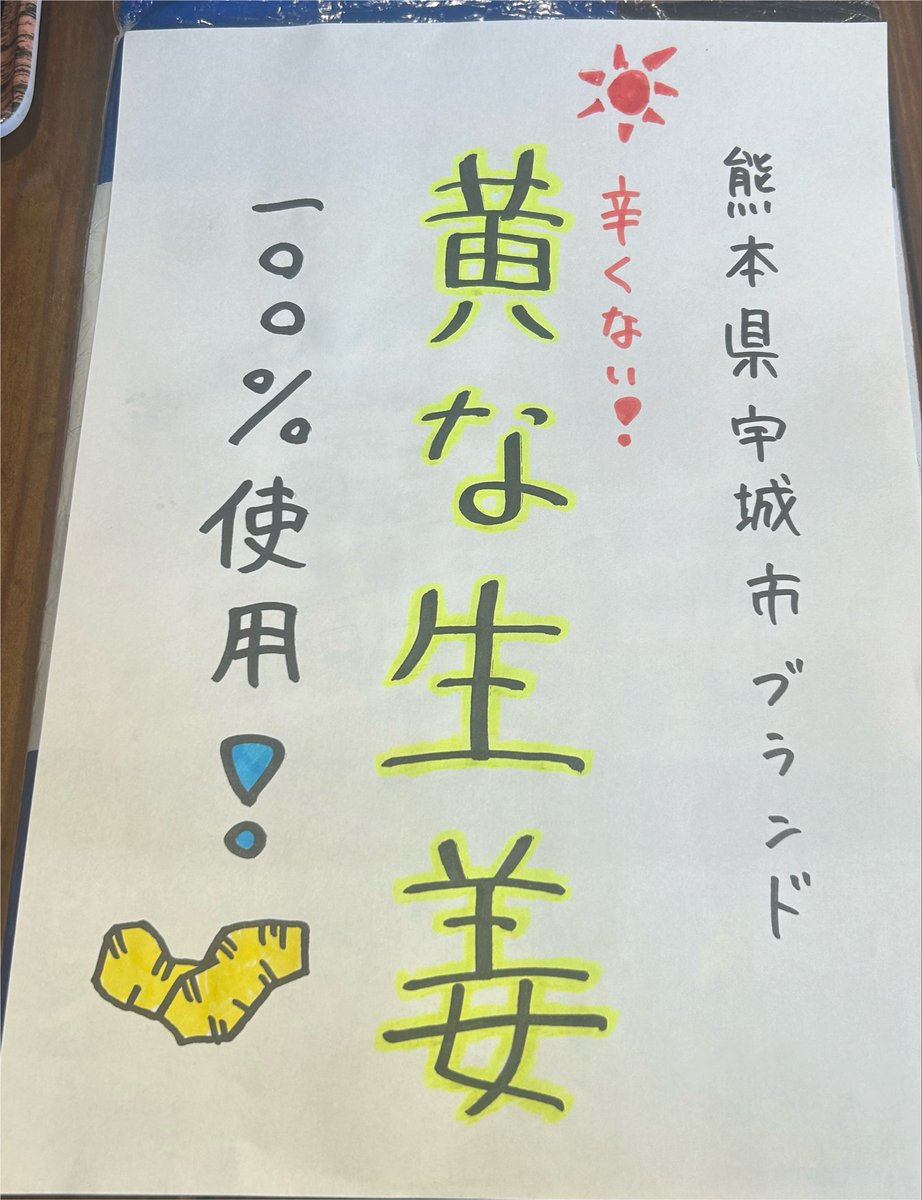 熊本県宇城市ブランド
辛くない!
黄な生姜
一〇〇%使用!